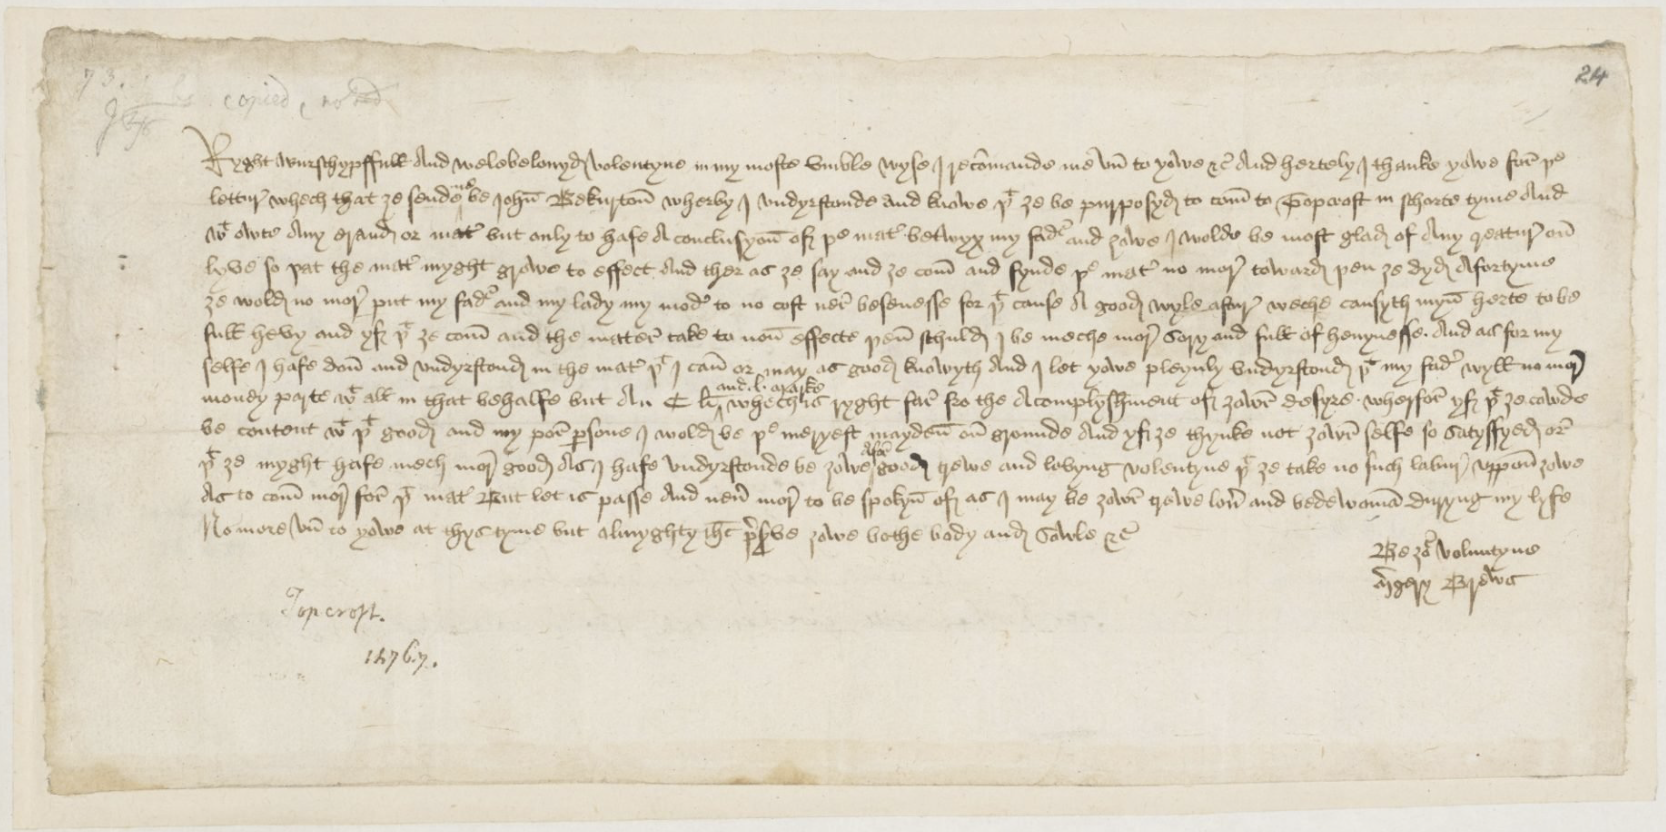 24
73.
copied, noted
Ryght wurschypffull And welebelouyd volentyne in my moste vmble wyse I recōmande me vn to yowe &c And hertely I thanke yowe for þe
lettur whech that ze sende me be John Bekurton wherby I vndyrstonde and knowe þt ze be purposyd to com to Topcroft in schorte tyme And
wt owte Any erand or mater but only to hafe A conclusyon of þe mater betwyx my fader and zowe I wolde be most glad of Any creatur on
lyve so þat the mater myght growe to effect And ther as ze say and ze com and fynde þe mater no mor toward þen ze dyd Afortyme
ze wold no mor put my fader and my lady my moder to no cost ner besenesse for þt cause A good wyle aftur weche causyth myn herte to be
full hevy and yf þt ze com and the mater take to non effecte þen schuld I be meche mor sory and full of heuynesse. And as for my
selfe I hafe don and vndyrstond in the mater þt I can or may as good knowyth And I let yowe pleynly vndyrstond þt my fader wyll no mor
money parte wt all in that behalfe but An C li and .l. marke whech is ryght far fro the Acomplyshment of zowr desyre. wherfor yf þt ze cowde
be content wt þt good and my por persone I wold be þe meryest mayden on grounde And yf ze thynke not zowr selfe so satysfyed or
þt ze myght hafe mech mor good As I hafe vndyrstonde be zowe Afor good trewe and lovyng volentyne þt ze take no such labur vppon zowe
As to com mor for þt mater But let is passe And neuer mor to be spokyn of as I may be zowr trewe louer and bedewoman duryng my lyfe
No more vn to yowe at thys tyme but almyghty Jhs preserve zowe bothe body and sowle &c
Be zor voluntyne
Mergery Brews
Topcroft.
1476.7.